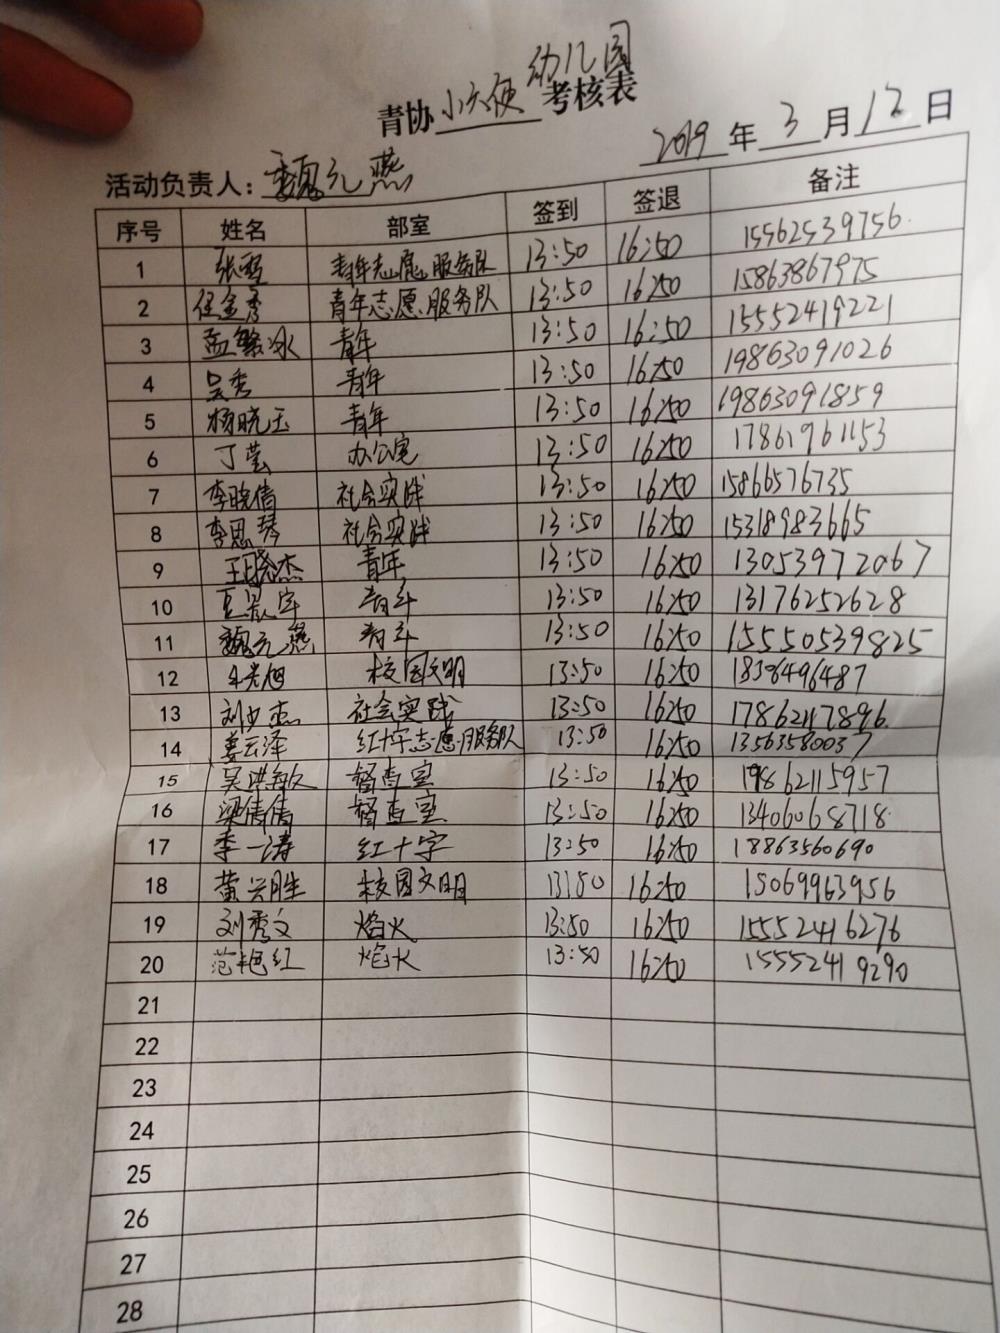 青协小天使幼儿园考核表
2019年3月12日
活动负责人：魏元燕
序号 姓名 部室 签到 签退 备注
1 张雪 青年志愿服务队 13:50 16:50 15562539756
2 任金秀 青年志愿服务队 13:50 16:50 15863867975
3 孟繁冰 青年 13:50 16:50 15552419221
4 吴秀 青年 13:50 16:50 19863091026
5 杨晓玉 青年 13:50 16:50 19863091859
6 丁莹 办公室 13:50 16:50 17861961153
7 李晓倩 社会实践 13:50 16:50 15866576735
8 李思琴 社会实践 13:50 16:50 15318983665
9 王晓杰 青年 13:50 16:50 13053972067
10 青年 13:50 16:50 13176252628
11 魏元燕 青年 13:50 16:50 15550539825
12 光旭 校园文明 13:50 16:50 18396496487
13 刘少杰 社会实践 13:50 16:50 17862117896
14 姜云泽 红十字志愿服务队 13:50 16:50 13563580037
15 吴洪敏 督查室 13:50 16:50 19862115957
16 梁倩倩 督查室 13:50 16:50 13406068718
17 李一涛 红十字 13:50 16:50 18863560690
18 黄兴胜 校园文明 13:50 16:50 15069963956
19 刘秀文 焰火 13:50 16:50 15552416276
20 范艳红 焰火 13:50 16:50 15552419290
21
22
23
24
25
26
27
28